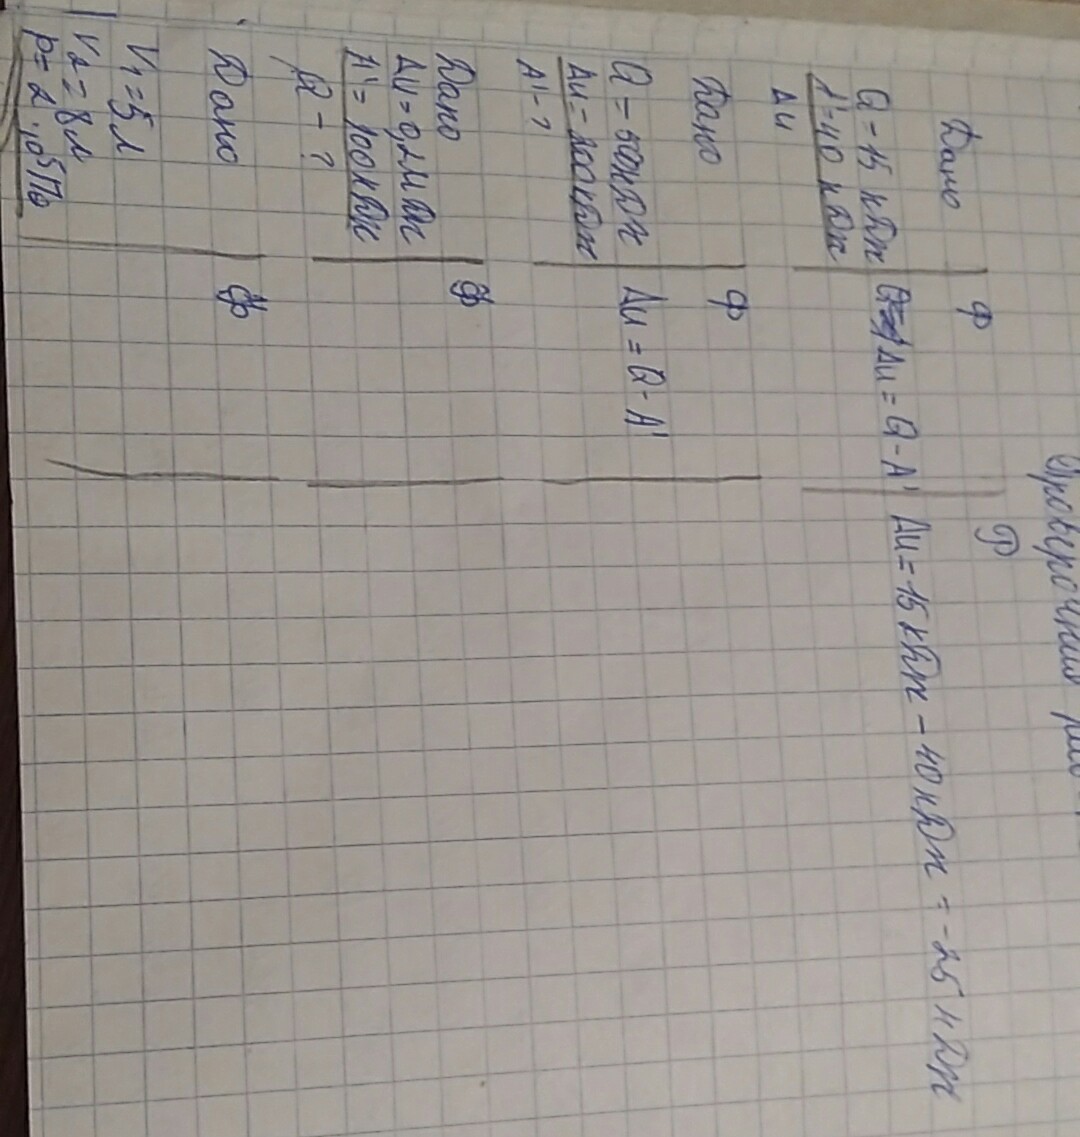 Проверочная
Дано Ф Р
Q = 15 кДж ΔU = Q - A' ΔU = 15 кДж - 40 кДж = -25 кДж
A' = 40 кДж
ΔU
Дано Ф
Q = 500 кДж ΔU = Q - A'
ΔU = 200 кДж
A' - ?
Дано Ф
ΔU = 0,2 МДж
A' = 100 кДж
Q - ?
Дано Ф
V₁ = 5 л
V₂ = 8 л
p = 2 · 10⁵ Па